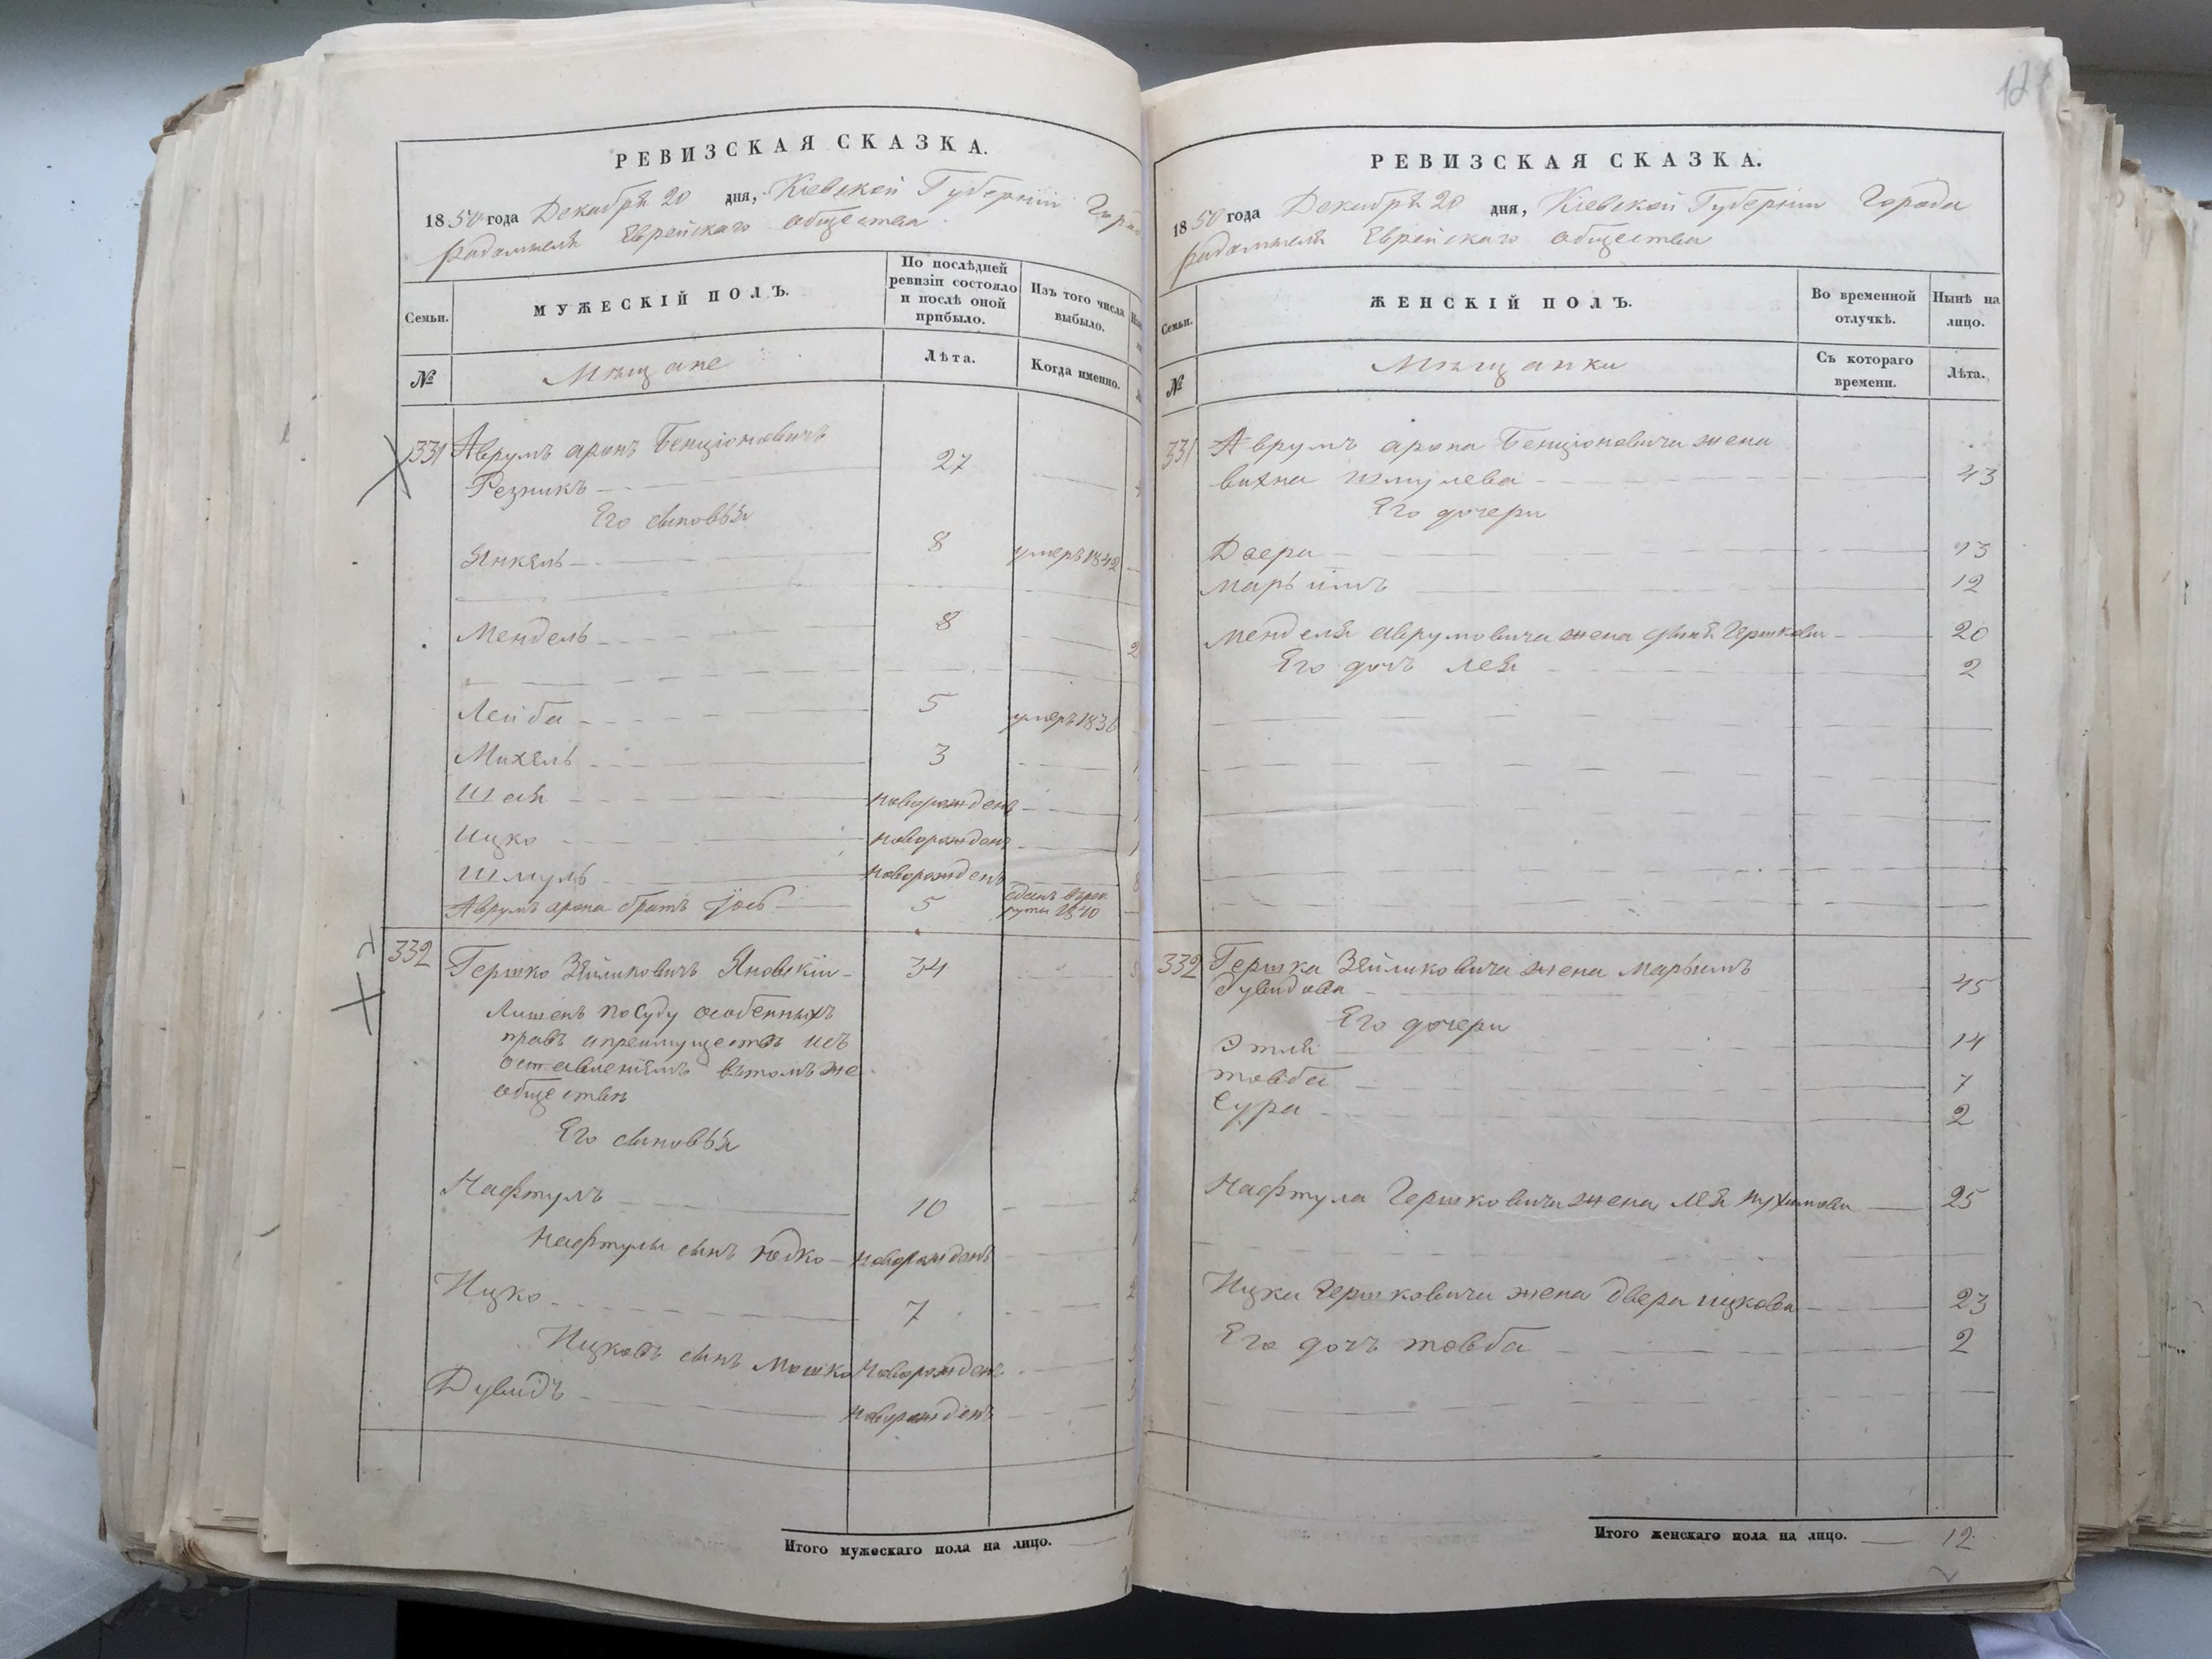 РЕВИЗСКАЯ СКАЗКА.
1850 года Декабря 20 дня, Кіевской Губерніи Горо
Радомысля Еврейскаго общества
Семьи.
МУЖЕСКІЙ ПОЛЪ.
По послѣдней
ревизіи состояло
и послѣ оной
прибыло.
Изъ того числа
выбыло.
№
Мѣщане
Лѣта.
Когда именно.
331 Аврумъ аронъ Бенціоновичъ
Резникъ 27
Его сыновья
Янкель 8 умеръ 1842
Мендель 8
Лейба 5 умеръ 1836
Михель 3
Шая новорожденъ
Ицко новорожденъ
Шмуль новорожденъ
Аврумъ арона братъ Іось 5 сданъ въ рек
руты 1840
332 Гершко Зейликовичъ Яновскій 34
Лишенъ по суду особенныхъ
правъ и преимуществъ но съ
оставленіемъ въ томъ же
обществѣ
Его сыновья
Нафтулъ 10
Нафтулы сынъ Юдко новорожденъ
Ицко 7
Ицковъ сынъ Мошко новорожденъ
Дувидъ новорожденъ
Итого мужескаго пола на лицо.
РЕВИЗСКАЯ СКАЗКА.
1850 года Декабря 20 дня, Кіевской Губерніи Города
Радомысля Еврейскаго общества
Семьи.
ЖЕНСКІЙ ПОЛЪ.
Во временной
отлучкѣ.
Нынѣ на
лицо.
№
Мѣщанки
Съ котораго
времени.
Лѣта.
331 Аврумъ арона Бенціоновича жена
Вихна Шмулева 43
Его дочери
Двера 13
Марьимъ 12
Менделя Аврумовича жена Гершкова 20
Его дочь Лея 2
332 Гершка Зейликовича жена Марьимъ
Дувидова 45
Его дочери
Этля 14
Товба 7
Сура 2
Нафтула Гершковича жена Лея Нухимова 25
Ицка Гершковича жена Двера Ицкова 23
Его дочь Товба 2
Итого женскаго пола на лицо. 12